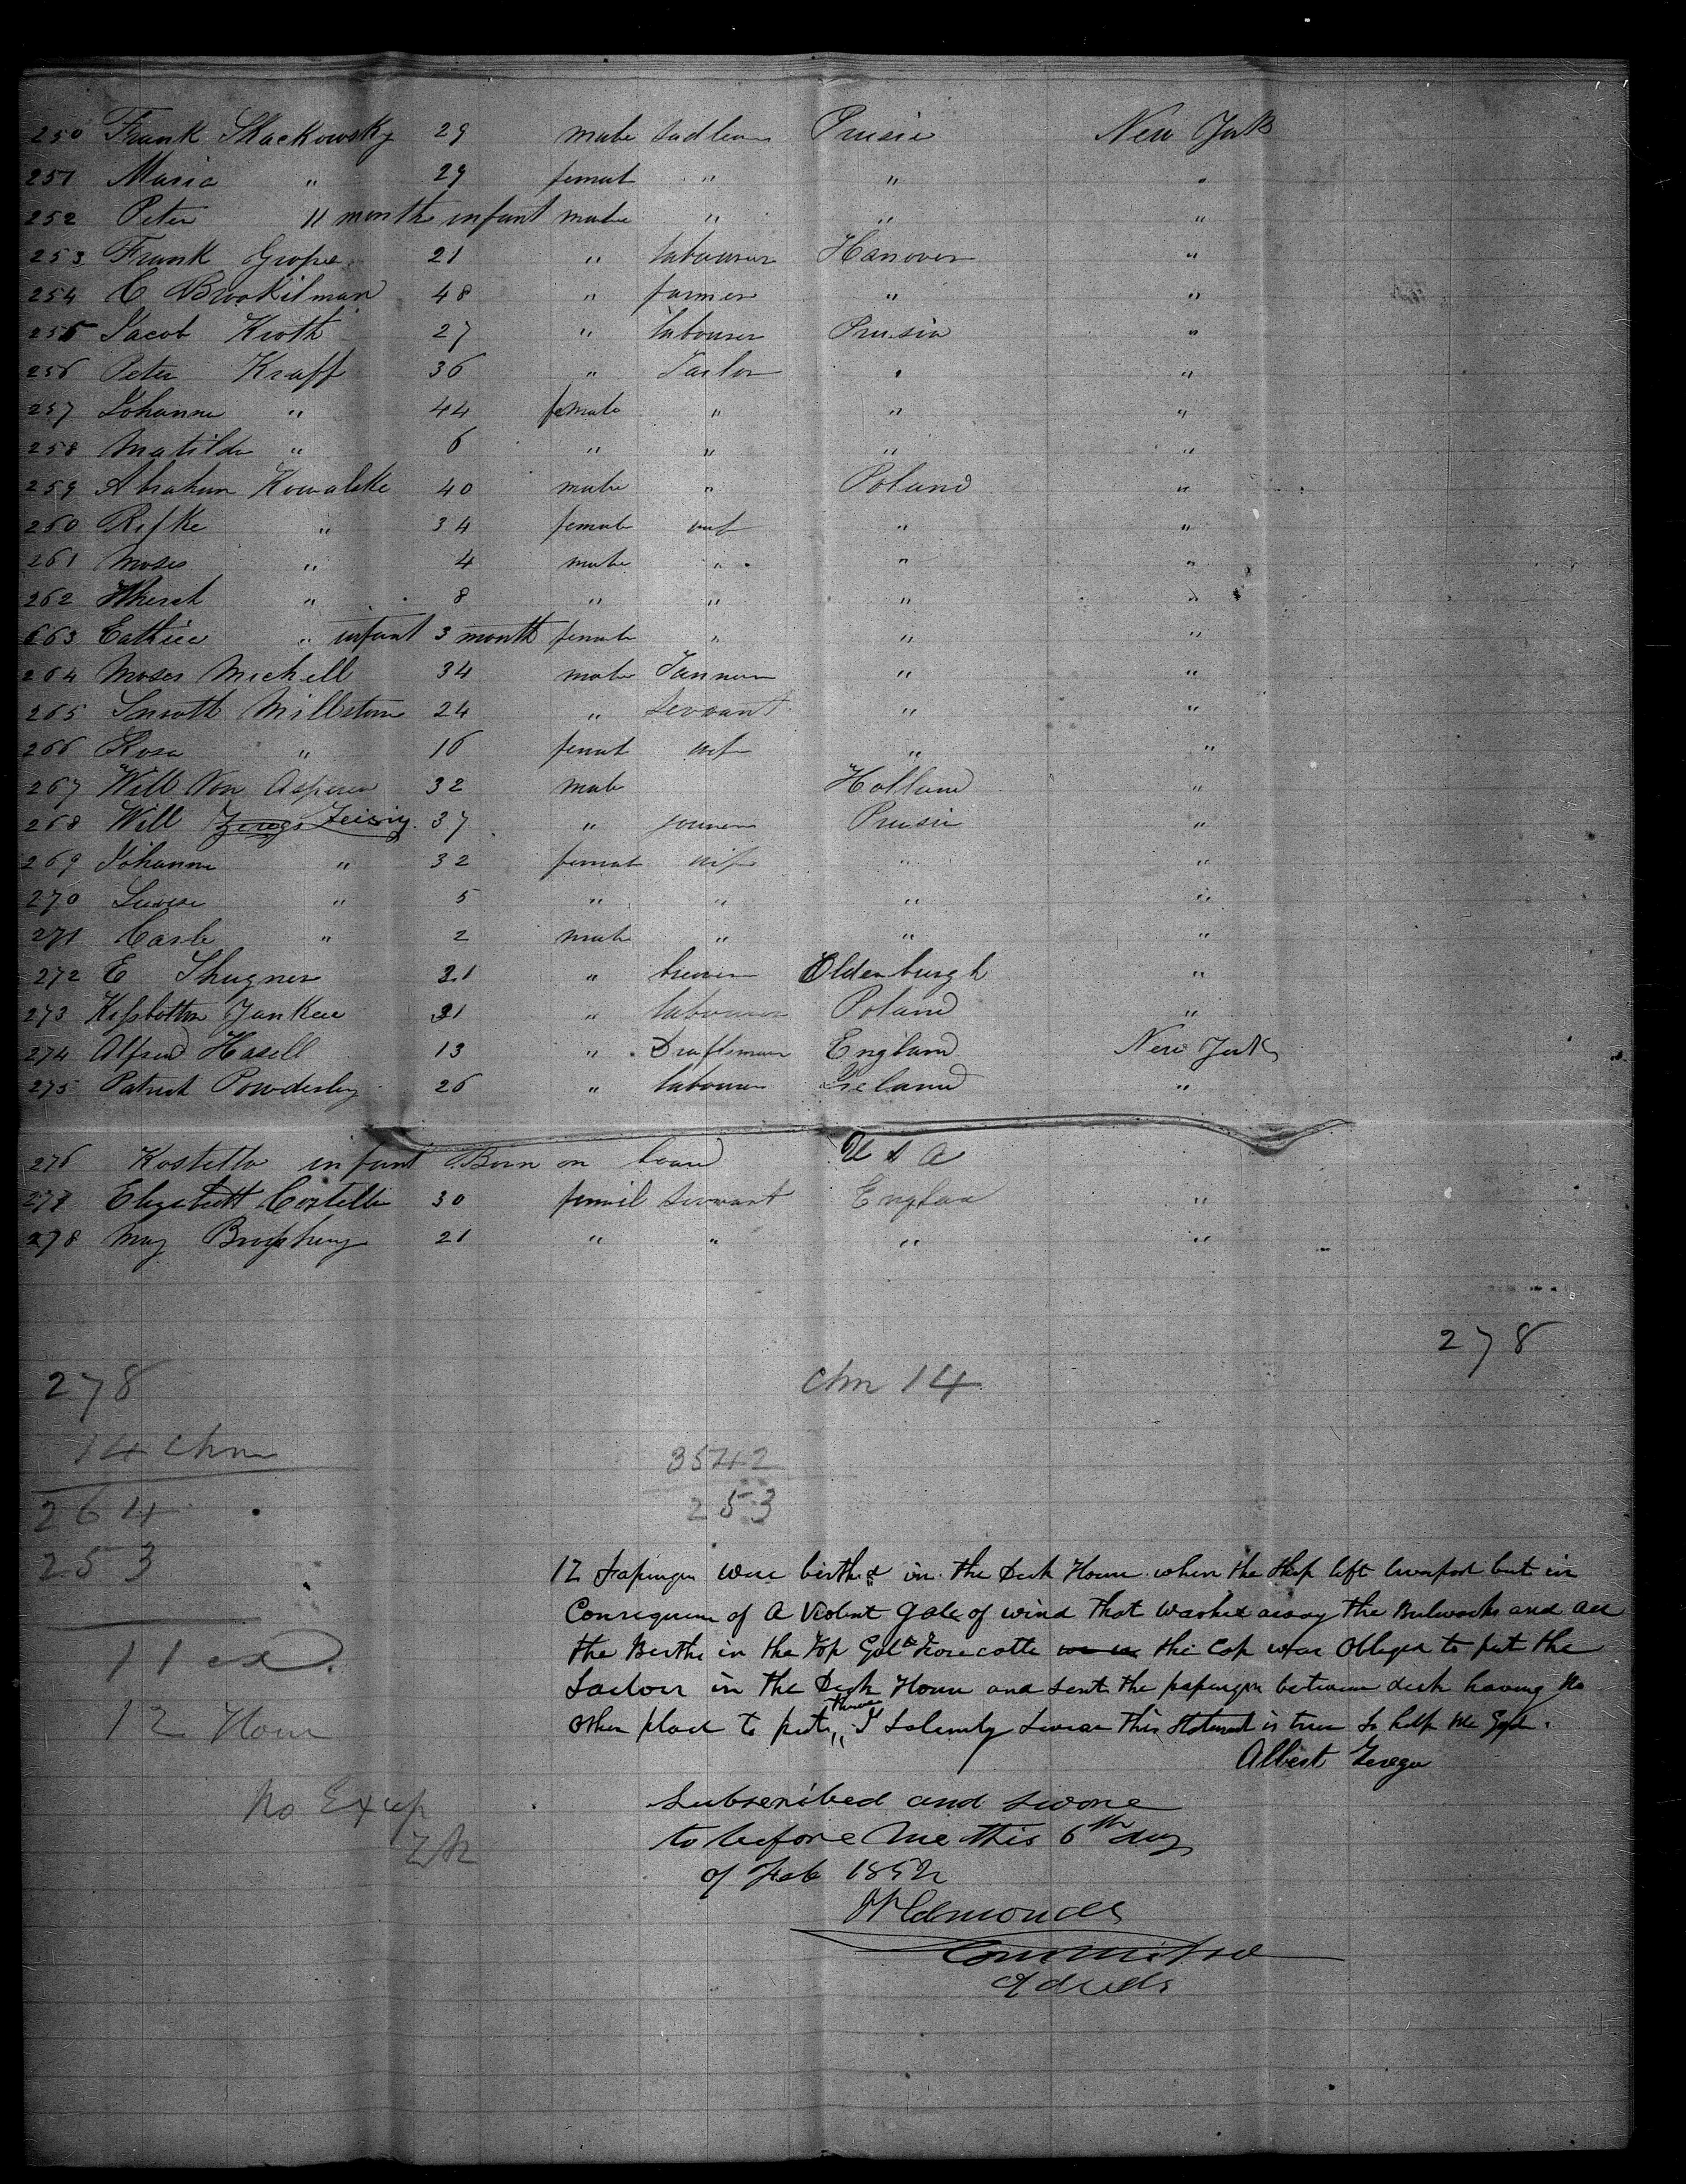 250 Frank Skackowsky 29 male Sadleer Prusia New York
251 Maria " 29 femal " " "
252 Peter 11 months infant male " " "
253 Frank Grope 21 " labourer Hanover "
254 C Brookilman 48 " farmer " "
255 Jacob Kroth 27 " labourer Prusia "
256 Peter Kraff 36 " Tailor " "
257 Johanne " 44 female " " "
258 Matilde " 6 " " " "
259 Abraham Kowalske 40 male " Poland "
260 Rifke " 34 female wif " "
261 Moses " 4 male " " "
262 Hersch " 8 " " " "
663 " infant 3 month female " " "
264 Moses Michell 34 male Tanner " "
265 Millstone 24 " Servant " "
266 Rosa " 16 femal wif " "
267 Will Von Asperen 32 male Holland "
268 Will Zeisig 37 " Prusia "
269 Johanne " 32 femal wif " "
270 Luise " 5 " " " "
271 Carle " 2 male " " "
272 E Shugner 21 " brewer Oldenburgh "
273 Yankee 21 " labourer Poland "
274 Alfred Hasell 13 " Draftsman England New York
275 Patrick Powderley 26 " labourer Ireland "
276 Kostello infant Born on board U S A
277 Elizabeth Costello 30 femail Servant England "
278 May 21 " " " "
278
278
chn 14
14 chn
35742
264
253
253
11 ex
12 House
12 Pasengers were birthed in the Deck House when the Ship left Liverpool but in
Consequence of A Violent Gale of wind that washed away the Bulwarks and all
the Berths in the Top Galt Forecastle the Cap was Obliged to put the
Sailors in the Deck House and sent the pasengers between deck having No
Other place to put them I Solemnly Swear this Statement is true So help Me God.
Albert Zerega
No Excep
Subscribed and swore
to before me this 6th day
of Feb 1852
Edmonds
Commiss
of deeds